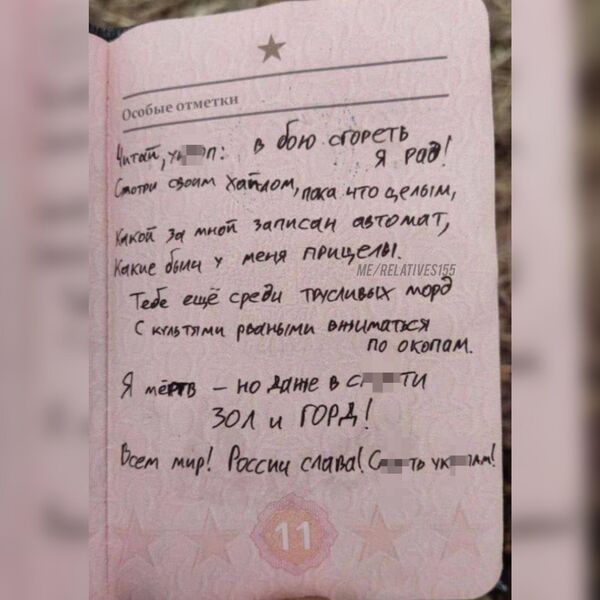 Особые отметки
Читай, ук п: в бою сгореть
я рад!
Смотри своим хайлом, пока что целым,
Какой за мной записан автомат,
Какие были у меня прицелы.
ME/RELATIVES155
Тебе ещё среди трусливых морд
С культями рваными вжиматься
по окопам.
Я мёртв – но даже в с ти
ЗОЛ и ГОРД!
Всем мир! России слава! С ть ук ам!
11